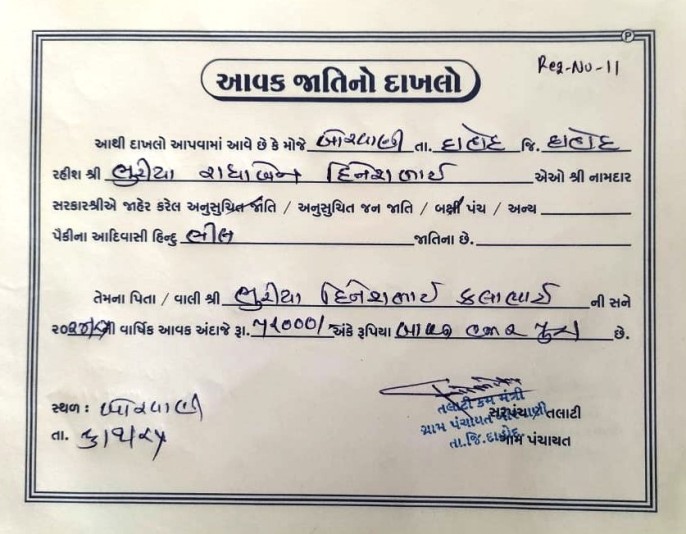 Reg-No-11
આવક જાતિનો દાખલો
આથી દાખલો આપવામાં આવે છે કે મોજે બોરવાણી તા. દાહોદ જિ. દાહોદ
રહીશ શ્રી ભુરીયા રાધાબેન દિનેશભાઈ એઓ શ્રી નામદાર
સરકારશ્રીએ જાહેર કરેલ અનુસુચિત જાતિ / અનુસુચિત જન જાતિ / બક્ષી પંચ / અન્ય
પૈકીના આદિવાસી હિન્દુ ભીલ જાતિના છે.
તેમના પિતા / વાલી શ્રી ભુરીયા દિનેશભાઈ કલાભાઈ ની સને
વાર્ષિક આવક અંદાજે રૂા. અંકે રૂપિયા હજાર પુરા છે.
સ્થળ : બોરવાણી
તા.
તલાટી કમ મંત્રી
સરપંચ તલાટી
ગ્રામ પંચાયત
તા.જિ.દાહોદ
ગ્રામ પંચાયત